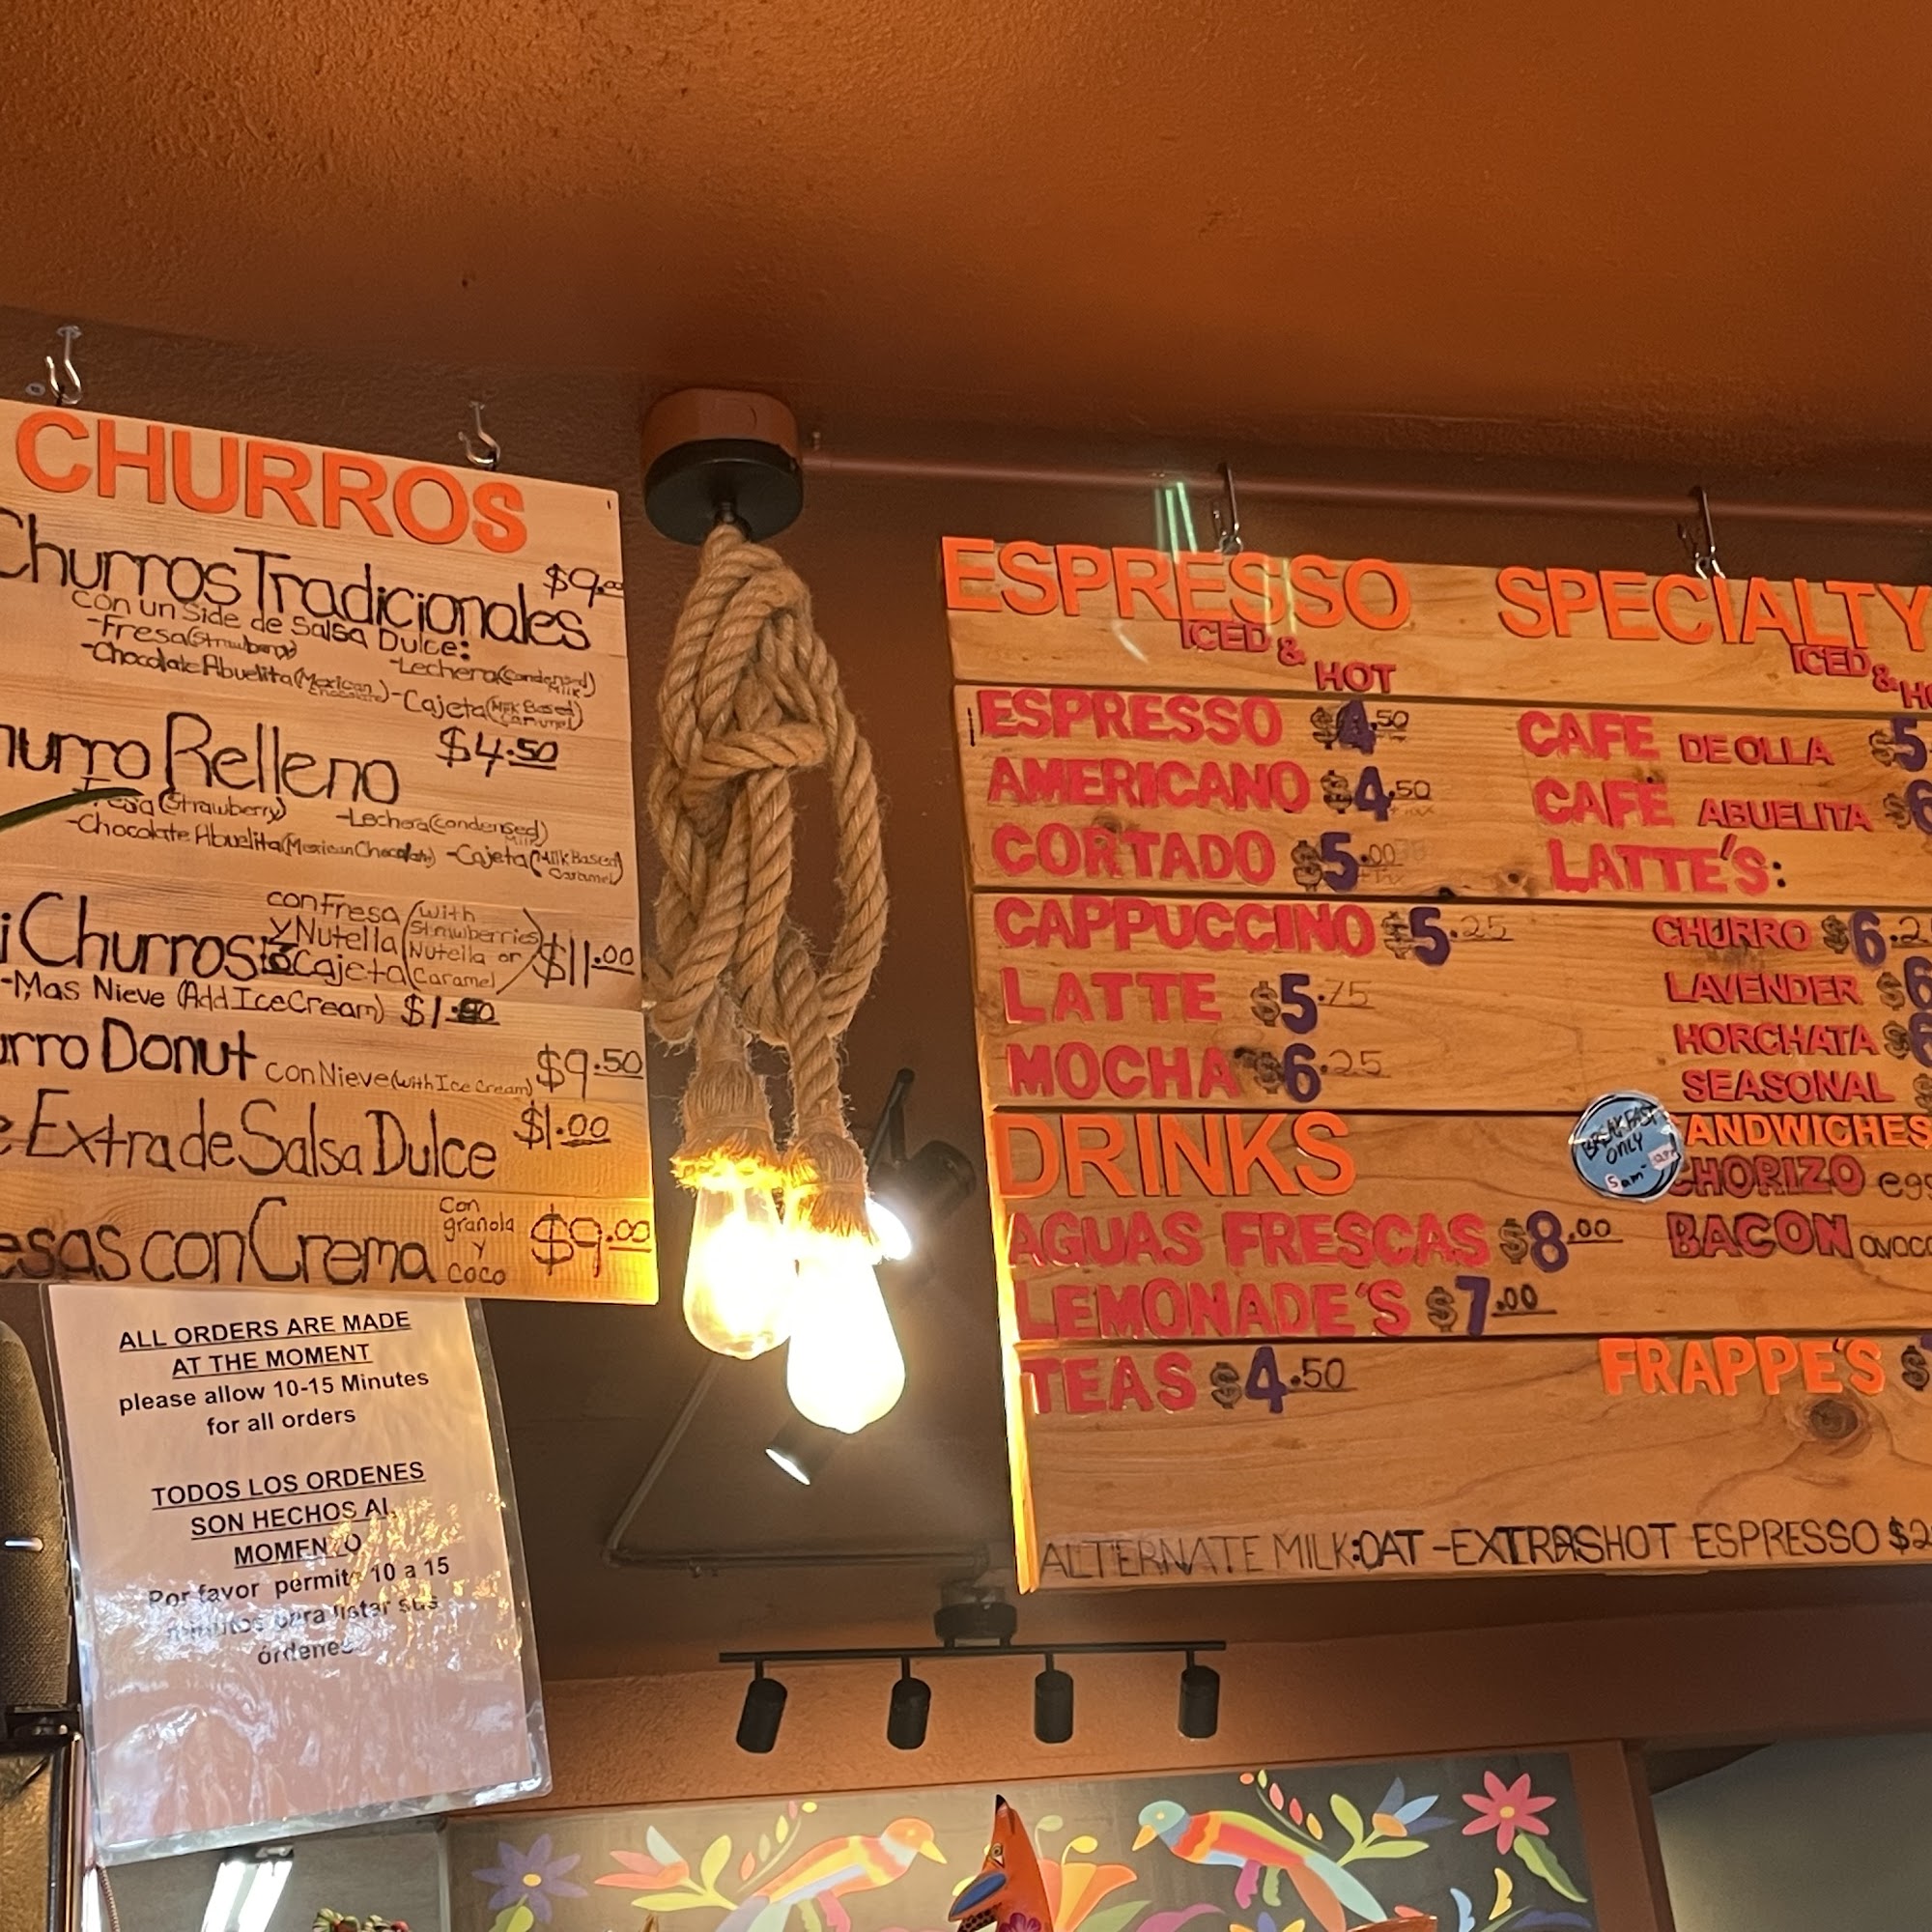 CHURROS
Churros Tradicionales $9.00
con un Side de Salsa Dulce:
-Fresa (Strawberry) -Lechera (Condensed Milk)
-Chocolate Abuelita (Mexican Chocolate) -Cajeta (Milk Based Caramel)
Relleno $4.50
(Strawberry) -Lechera (Condensed Milk)
-Chocolate Abuelita (Mexican Chocolate) -Cajeta (Milk Based Caramel)
Churros con Fresa y Nutella o Cajeta (with Strawberries Nutella or Caramel) $11.00
-Mas Nieve (Add Ice Cream)
Donut con Nieve (with Ice Cream) $9.50
Extra de Salsa Dulce $1.00
con Crema con granola y coco $9.00
ALL ORDERS ARE MADE
AT THE MOMENT
please allow 10-15 Minutes
for all orders
TODOS LOS ORDENES
SON HECHOS AL
MOMENTO
Por favor permite 10 a 15
minutos para listar sus
órdenes
ESPRESSO
ICED & HOT
ESPRESSO $4.50
AMERICANO $4.50
CORTADO $5.00
CAPPUCCINO $5.25
LATTE $5.75
MOCHA $6.25
DRINKS
AGUAS FRESCAS $8.00
LEMONADE'S $7.00
TEAS $4.50
SPECIALTY
ICED &
CAFE DE OLLA $5
CAFE ABUELITA $6
LATTE'S:
CHURRO $6.2
LAVENDER $6
HORCHATA $6
SEASONAL $
BREAKFAST
ONLY
5am-
SANDWICHES
CHORIZO
BACON
FRAPPE'S $
ALTERNATE MILK:OAT-EXTRA SHOT ESPRESSO $2